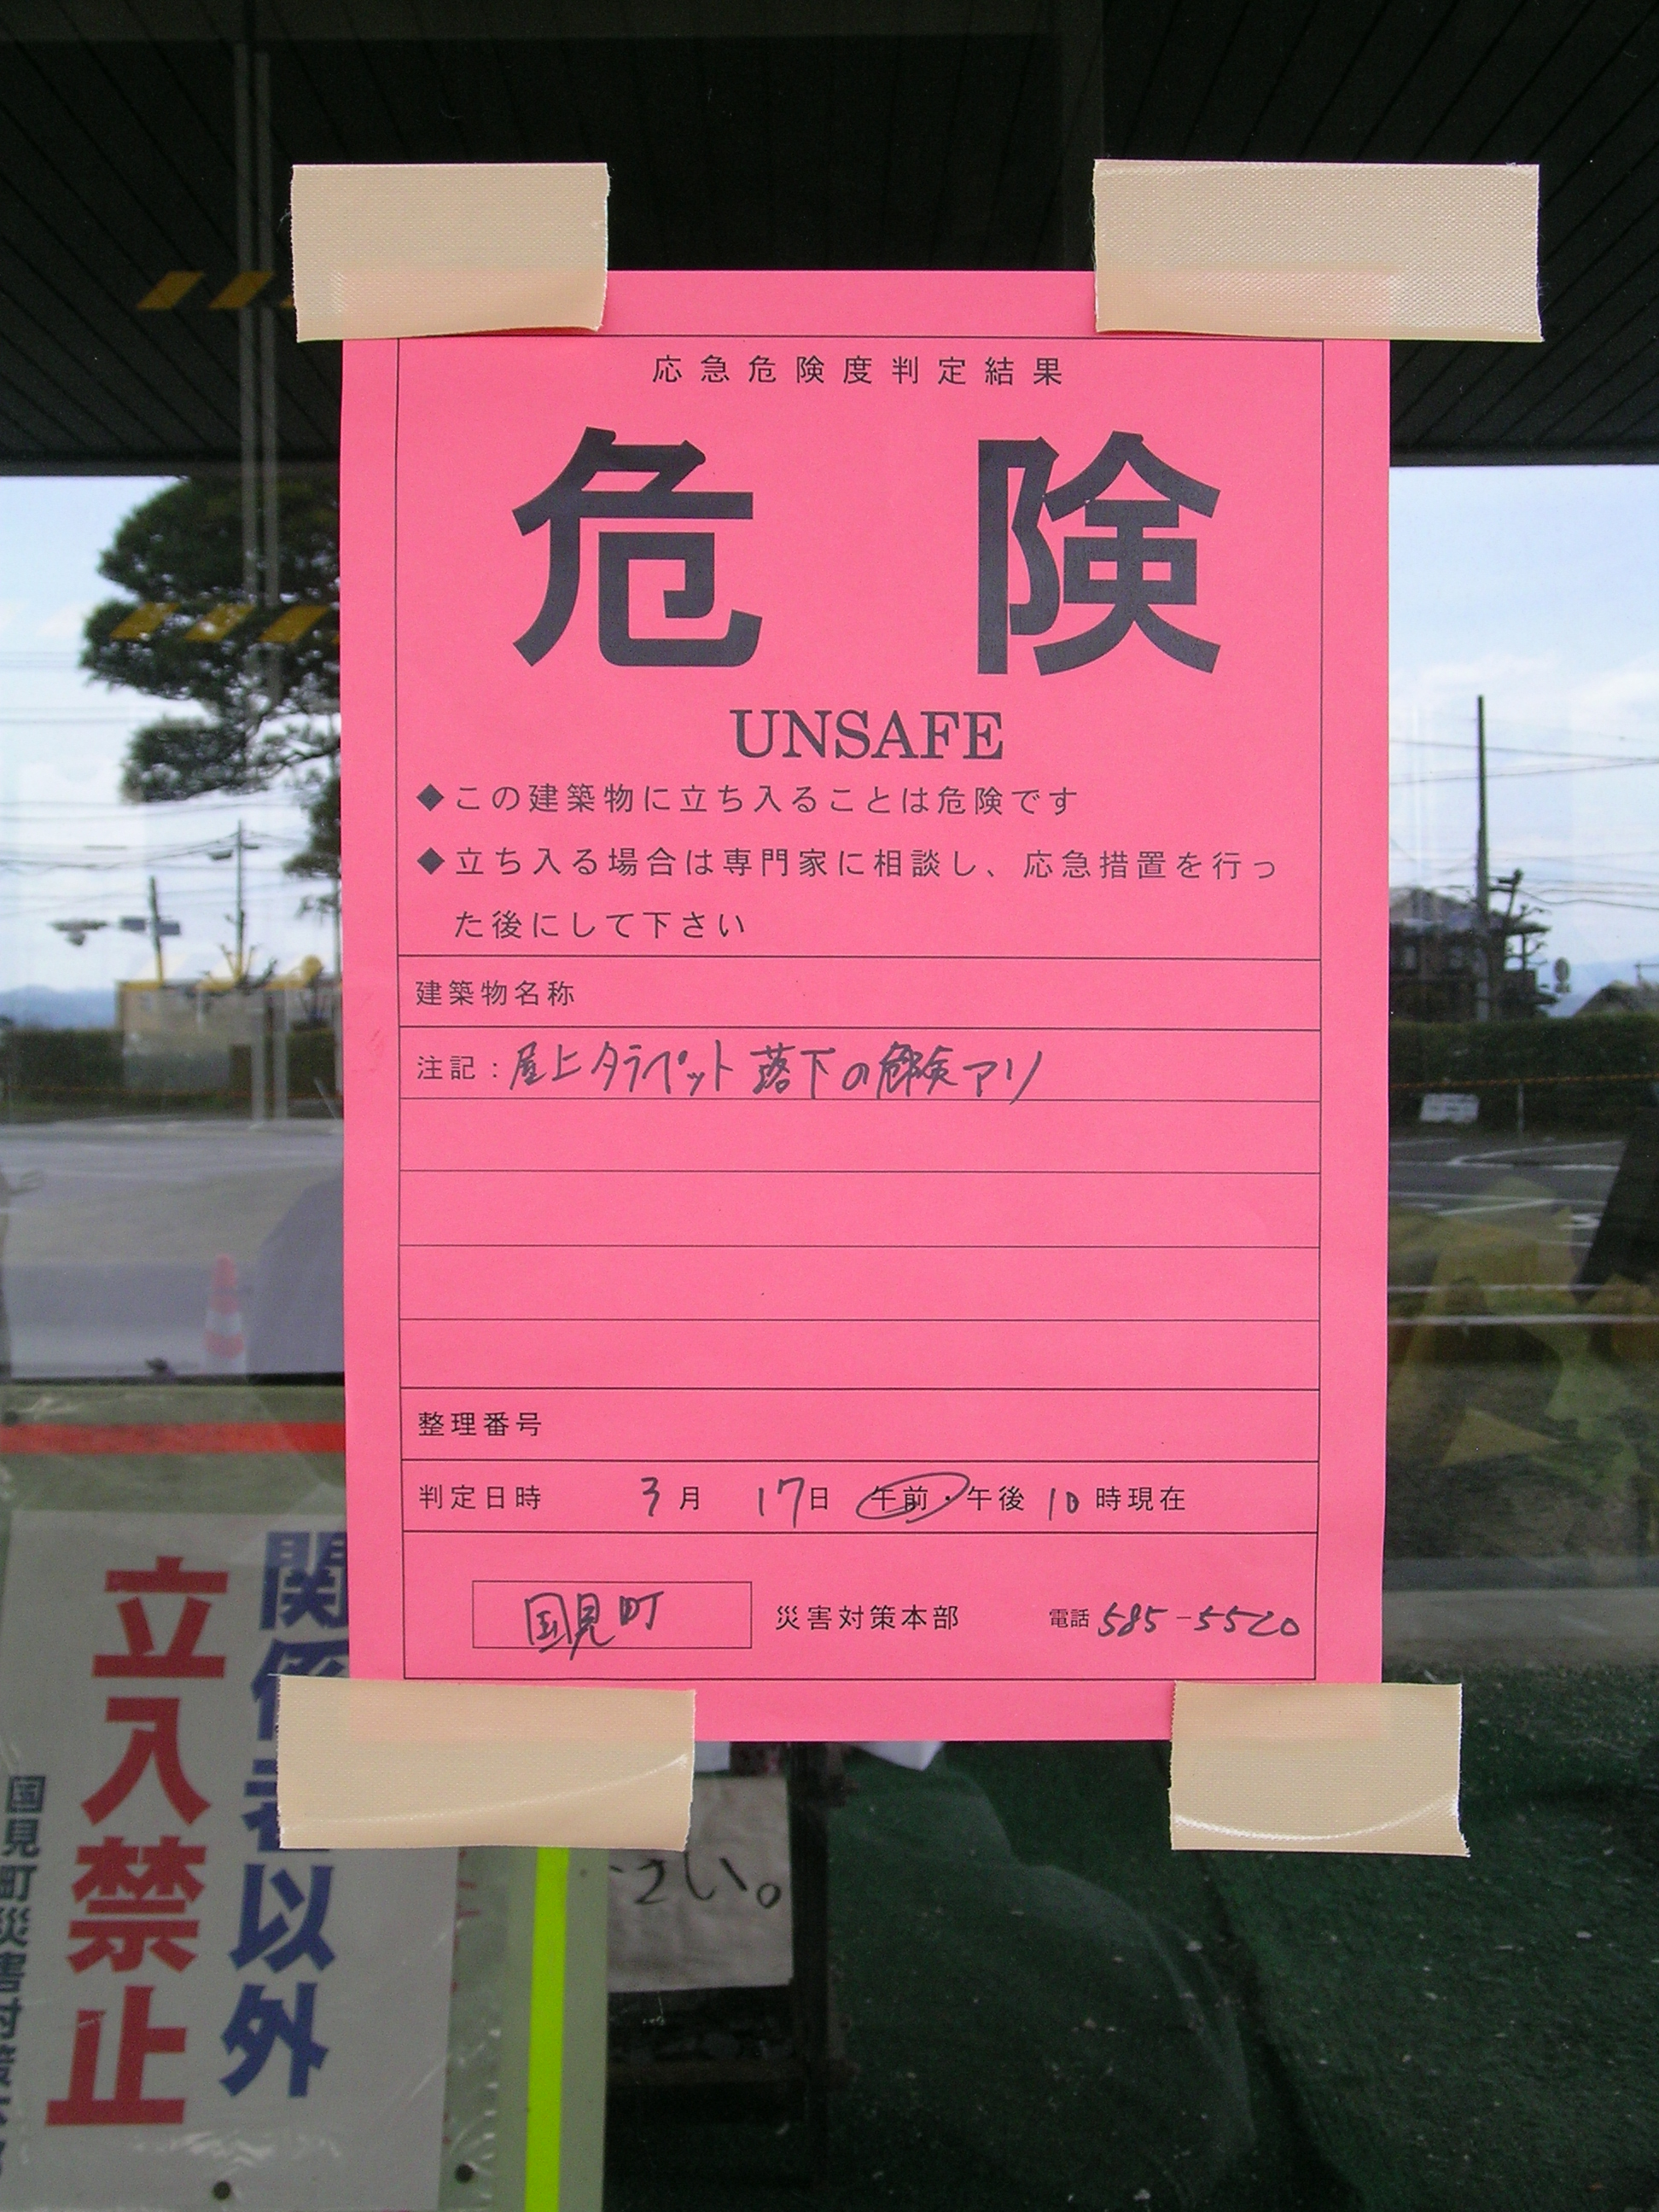 応急危険度判定結果
危険
UNSAFE
◆この建築物に立ち入ることは危険です
◆立ち入る場合は専門家に相談し、応急措置を行っ
た後にして下さい
建築物名称
注記:屋上タラペット落下の危険アリ
整理番号
判定日時 3月 17日 午前・午後 10時現在
国見町 災害対策本部 電話 585-5520
関係者以外
立入禁止
国見町災害対策
さい。